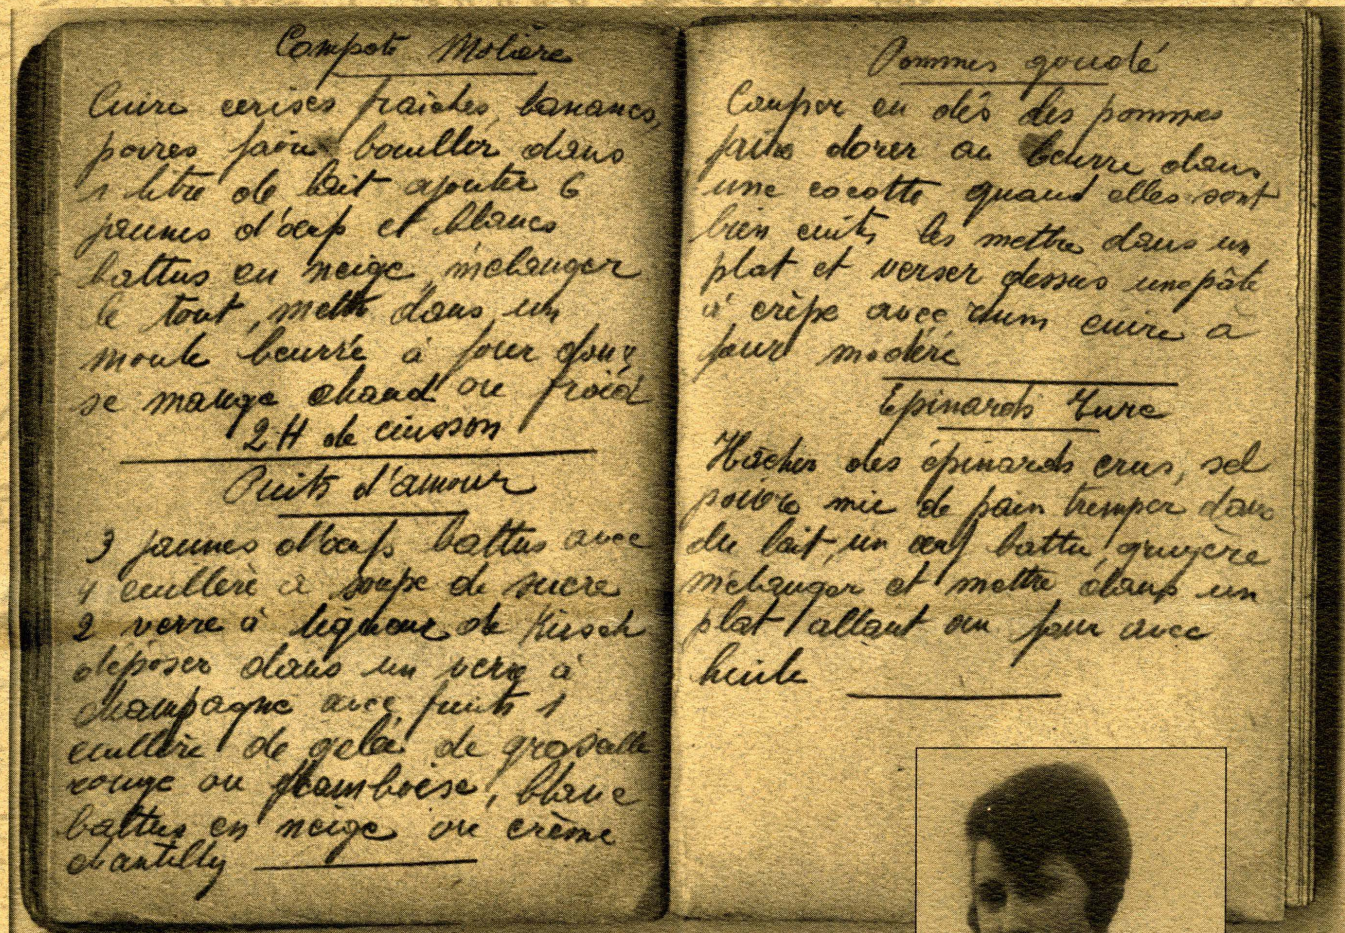 Compote Molière
Cuire cerises fraiches, bananes,
poires faire bouillir dans
1 litre de lait ajouter 6
jaunes d'œufs et blancs
battus en neige, mélanger
le tout, mettre dans un
moule beurré à four doux
se mange chaud ou froid
2 H de cuisson
Puits d'amour
3 jaunes d'œufs battus avec
4 cuillère à soupe de sucre
2 verre à liqueur de Kirsch
déposer dans un verre à
champagne avec fruits 1
cuillère de gelée de groseille
rouge ou framboise, blanc
battus en neige ou crème
chantilly
Pommes
Couper en dés des pommes
faire dorer au beurre dans
une cocotte quand elles sont
bien cuits les mettre dans un
plat et verser dessus une pâte
à crêpe avec rhum cuire à
four modéré
Epinards Turc
Hâcher des épinards crus, sel
poivre mie de pain tremper dans
du lait, un œuf battu, gruyère
mélanger et mettre dans un
plat allant au four avec
huile